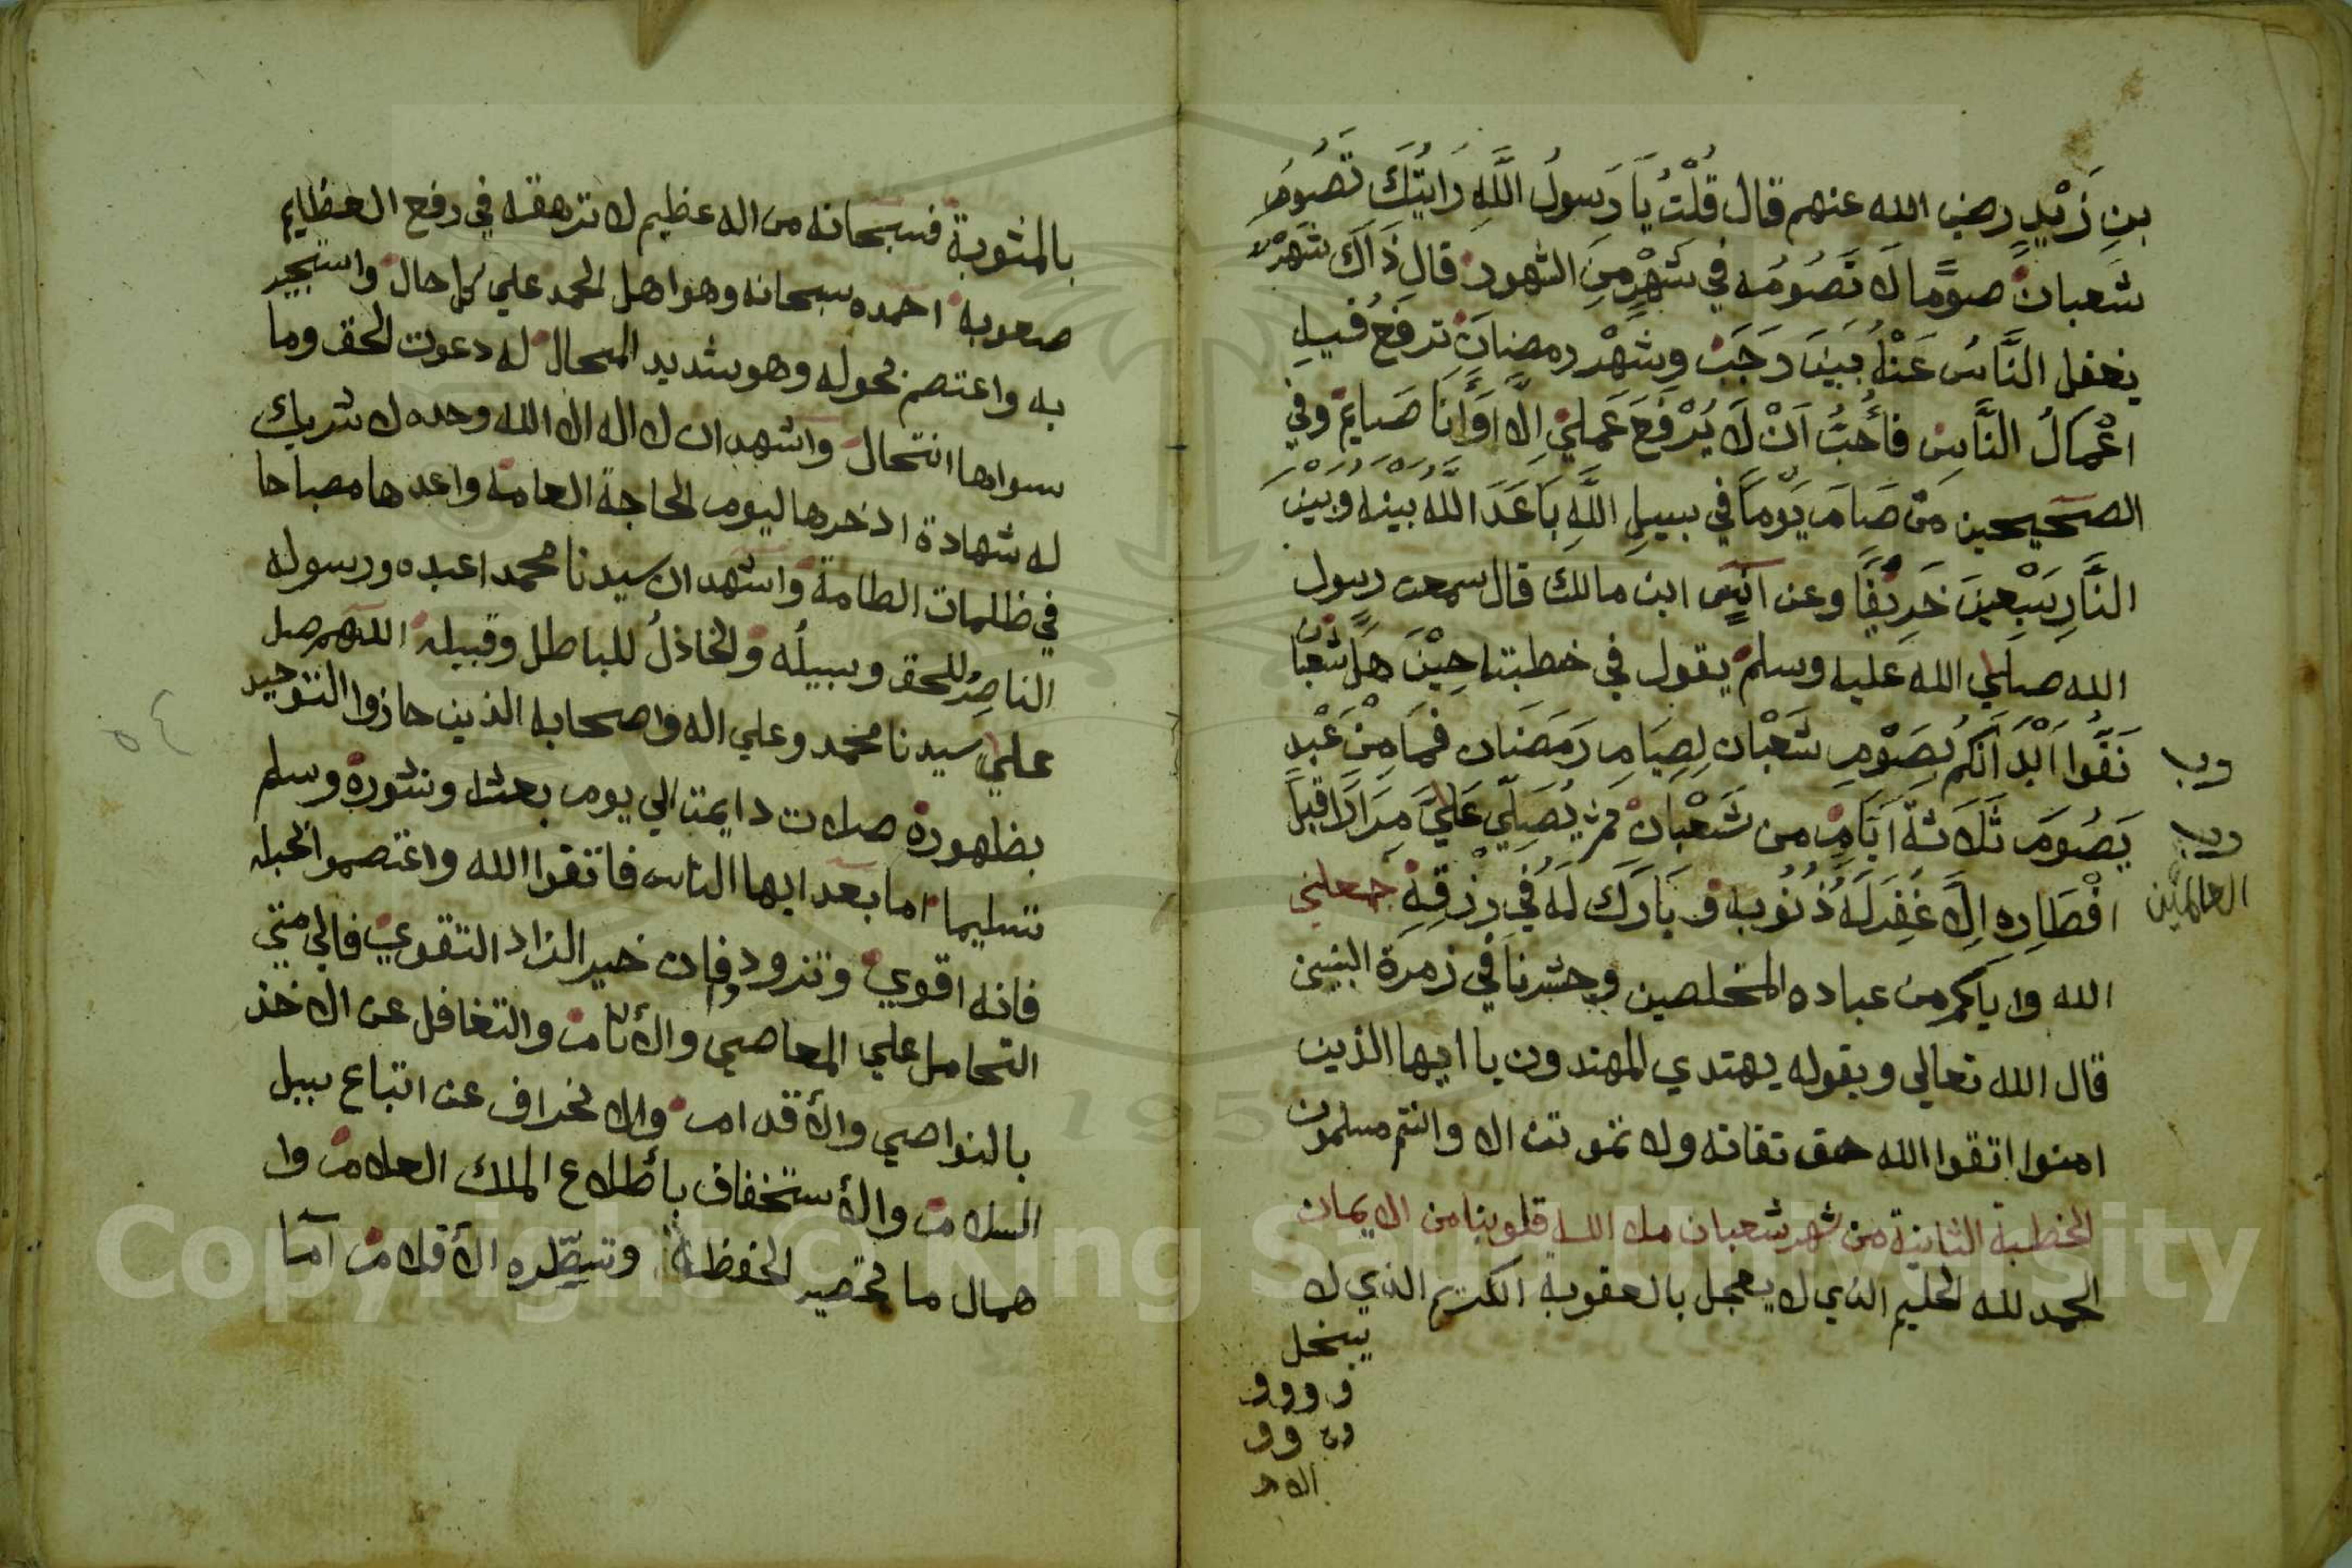 بنِ زَيْدٍ رضي الله عنهم قال قُلْتُ يَا رَسولُ اللَّهِ رَايتُكَ تَصُومُ
شعبان صومًا لا تَصُومُه في شَهْرٍ مِنَ الشهور قال ذَاكَ شَهْرٌ
يغفل النَّاسُ عَنْهُ بَيْنَ رَجَبْ وشَهْر رمضان ترفعُ فيهِ
اعْمَالُ النَّاسِ فأُحِبُّ اَنْ لَا يُرْفَعَ عَمَلِي اِلَّا وَأَنَا صَايمٌ وفي
الصحيحين مَنْ صَامَ يَوْمًا في سبيلِ اللَّهِ بَاعَدَ اللَّهُ بينه وَبَيْنَ
النَّارِ سَبْعِينَ خَرِيْفًا وعن انس ابن مالك قال سمعت رسول
الله صلي الله عليه وسلم يقول في خطبته حِيْنَ هَلَّ شعبان
نَقُّوا اَبْدَانَكُمْ بِصَوْمِ شَعْبَان لِصِيَامِ رَمَضَان فَمَا مِنْ عَبْدٍ
يَصُومَ ثَلَاثَةَ اَيَّامٍ من شَعْبَانْ ثم يُصَلِّي عَلَيَّ مِرَارًا قبل
افْطَارِه اِلَّا غَفِرَ لَهُ ذُنُوبه وَبَارَكَ لَهُ في رِزْقِهِ جعلني
العالمين
الله واياكم من عباده المخلصين وحشرنا في زمرة النبيين
قال الله تعالي وبقوله يهتدي المهتدون يا ايها الذين
امنوا اتقوا الله حق تقاته ولا تموتن الا وانتم مسلمون
الخطبة الثانية من شهر شعبان ملا الله قلوبنا من الايمان
الحمد لله الحليم الذي لا يعجل بالعقوبة الكريم الذي لا
يبخل
بالمثوبة فسبحانه من اله عظيم لا ترهقه في رفع العظايم
صعوبة احمده سبحانه وهو اهل الحمد علي كل حال واستجير
به واعتصم بحوله وهو شديد المحال له دعوت الحق وما
سواها انتحال واشهد ان لا اله الا الله وحده لا شريك
له شهادة ادخرها ليوم الحاجة العامة واعدها مصباحا
في ظلمات الطامة واشهد ان سيدنا محمدا عبده ورسوله
الناصِرُ للحق وسبيلُه والخاذلُ للباطل وقبيله اللهم صل
علي سيدنا محمد وعلي اله واصحابه الذين حازوا التوحيد
بظهوره صلات دايمة الي يوم بعثه ونشوره وسلم
تسليما اما بعد ايها الناس فاتقوا الله واعتصموا بحبله
فانه اقوي وتزود وا فان خير الزاد التقوي فالي متي
التحامل علي المعاصي والأثام والتغافل عن الاخذ
بالنواصي والأقدام والانحراف عن اتباع سبيل
السلام والأستخفاف بأطلاع الملك العلام وا
همال ما تحصيه الحفظة وتسطّره الأقلام آما
٥٤